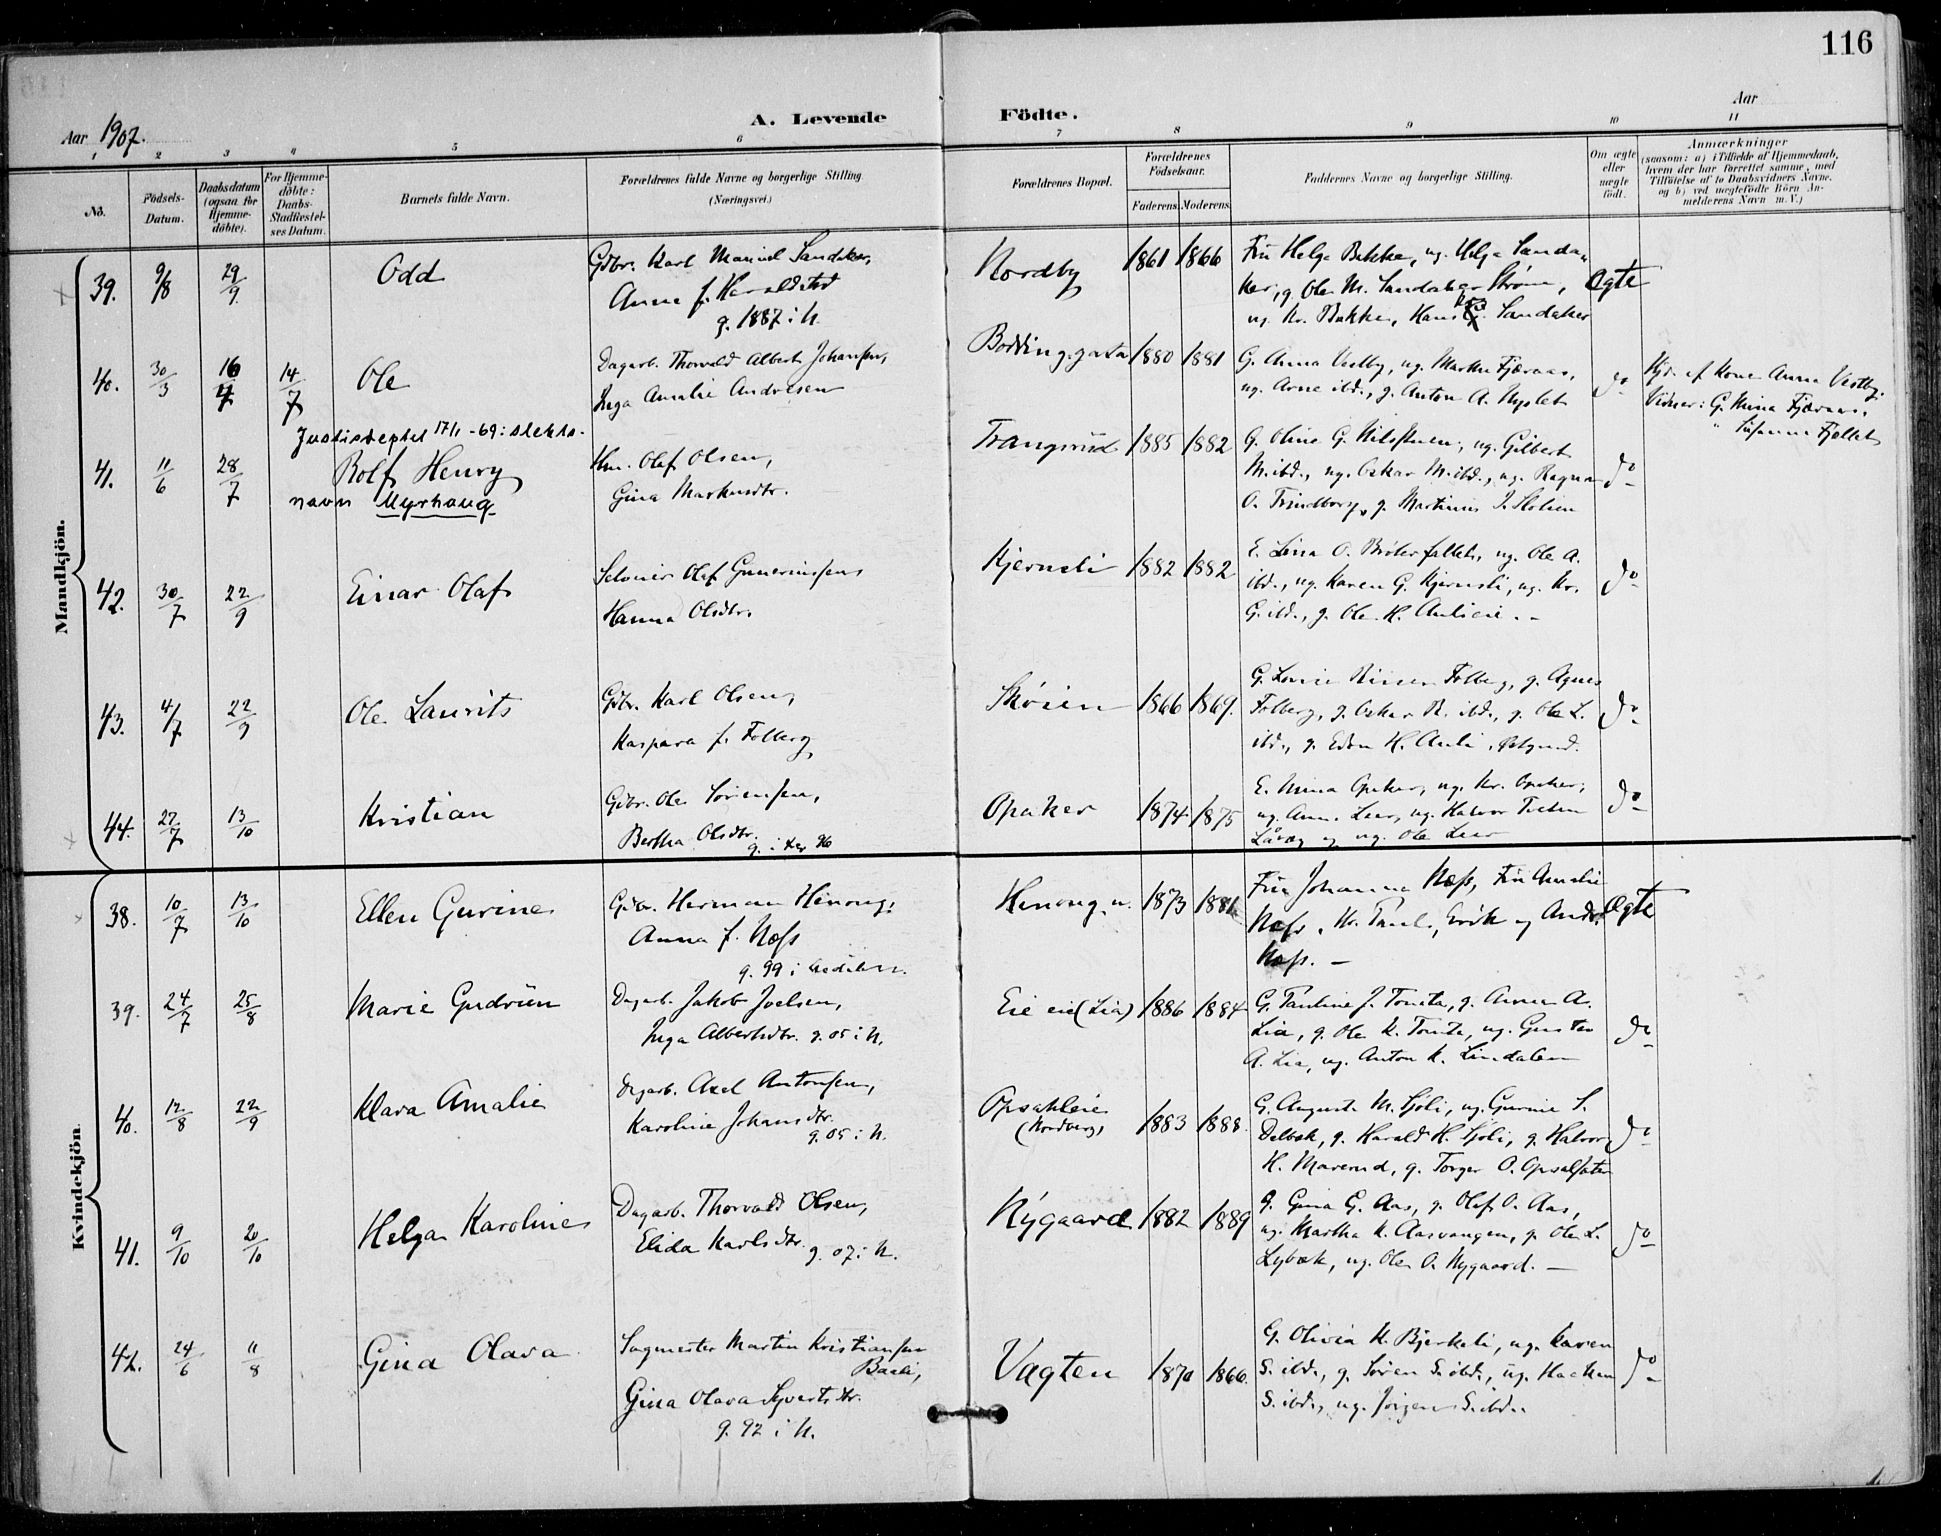 116
Aar 1907.
A. Levende Födte.
Aar
1 2 3 4 5 6 7 8 9 10 11
No.
Födsels-Datum.
Daabsdatum (ogsaa for Hjemme-döbte).
For Hjemme-döbte: Daabs-Stadfæstel-ses Datum.
Barnets fulde Navn.
Forældrenes fulde Navne og borgerlige Stilling.
(Næringsvei.)
Forældrenes Bopæl.
Forældrenes Födselsaar.
Faderens. Moderens.
Faddernes Navne og borgerlige Stilling.
Om ægte eller uægte födt.
Anmærkninger
(saasom: a) i Tilfælde af Hjemmedaab,
hvem der har forrettet samme, med
Tilföielse af to Daabsvidners Navne,
og b) ved uægtefödte Börn An-
melderens Navn m. V.)
Mandkjön.
39. 9/8 29/9. Odd
Gdbr. Karl Manuel Sandaker,
Anna f. Haraldstad
g. 1887 i N.
Nordby 1861 1866
Fru Helga Bakke, ug. Helga Sanda-
ker, g. Ole M. Sandaker Strøm,
ug. Kr. Bakke, Hans Sandaker
Ægte
40. 30/3 16/7 14/7 Ole
Dagarb. Thorvald Albert Johansen,
Inga Amalie Andresen
Boddinggata 1880 1881
G. Anna Vestby, ug. Marthe Fjæraas,
ug. Arne ibd., g. Anton A. Nyslet
do
Hjd. af Kone Anna Vestby.
Vidner: G. Mina Fjæraas,
" Susanne Fjellet
Justisdeptet 17/1 -69: slekts-
41. 11/6 28/7 Rolf Henry
navn Myrhaug
Hm. Olaf Olsen,
Gina Markusdtr.
Trangsrud 1885 1882
G. Oline G. Nilsstuen, ug. Gilbert
M. ibd., ug. Oskar M. ibd., ug. Ragna
O. Trindborg, g. Martinius J. Stolien
do
42. 30/7 22/9 Einar Olaf
Selveier Olaf Gunerius­sen
Hanna Olsdtr.
Kjernsli 1882 1882
E. Lina O. Bråterfallet, ug. Ole A.
ibd., ug. Karen G. Kjernsli, ug. Kr.
G. ibd., g. Ole H. Aulieie. -
do
43. 4/7 22/9 Ole Laurits
Gdbr. Karl Olsen,
Kaspara f. Folberg
Skøien 1866 1869.
G. Lovise Folberg, g. Agnes
Folberg, g. Oskar R. ibd., g. Ole L.
ibd., g. Edvn H. Auli,
do
44. 27/7 13/10 Kristian
Gdbr. Ole Sørensen,
Bertha Olsdtr.
g. i
Opaker 1874. 1875
E. Mina Opaker, ug. Kr. Opaker,
ug. Anna Leer, ug. Halvor
og ug. Ole Leer
do
Kvindekjön.
38. 10/7 13/10 Ellen Gurine
Gdbr. Herman Henong,
Anna f. Næss
g. 99 i
Henong. n. 1873 1881
Fru Johanna Næss, Fru Amalie
Næss, Kr. Paul, Erik og Andr.
Næss. -
Ægte
39. 24/7 25/8 Marie Gudrun
Dagarb. Jakob Joelsen,
Inga Albertsdtr. g. 05 i N.
Eie eie (Lia) 1886 1884
G. Pauline J. Tomta, g. Anne A.
Lia, g. Ole K. Tomta, ug. Gustav
A. Lia, ug. Anton K. Lindalen
do
40. 12/8 22/9 Klara Amalie
Dagarb. Axel Antonsen,
Karoline Johansdtr.
g. 05 i N.
Opsahleie
(Nordberg) 1883 1888.
G. Augusta M. Sjøli, ug. Gurine S.
Delbæk, g. Harald H. Sjøli, g. Halvor
H. Maverud, g. Torger O. Opsalsæter
do
41. 9/10 20/10 Helga Karoline
Dagarb. Thorvald Olsen,
Elida Karlsdtr. g. 07 i N.
Nygaard 1882 1889
g. Gina G. Aas, g. Olaf O. Aas,
ug. Martha K. Aasvangen, g. Ole L.
Lybæk, ug. Ole O. Nygaard. -
do
42. 24/6 11/8 Gina Olava
Sagmester Martin Kristiansen
Baeli,
Gina Olava Syvertsdtr.
g. 92 i N.
Vagten 1870 1866.
G. Olivia K. Bjerkeli, ug. Karen
S. ibd., g. Søren S. ibd., ug. Haaken
S. ibd., ug. Jörgen S. ibd.
do